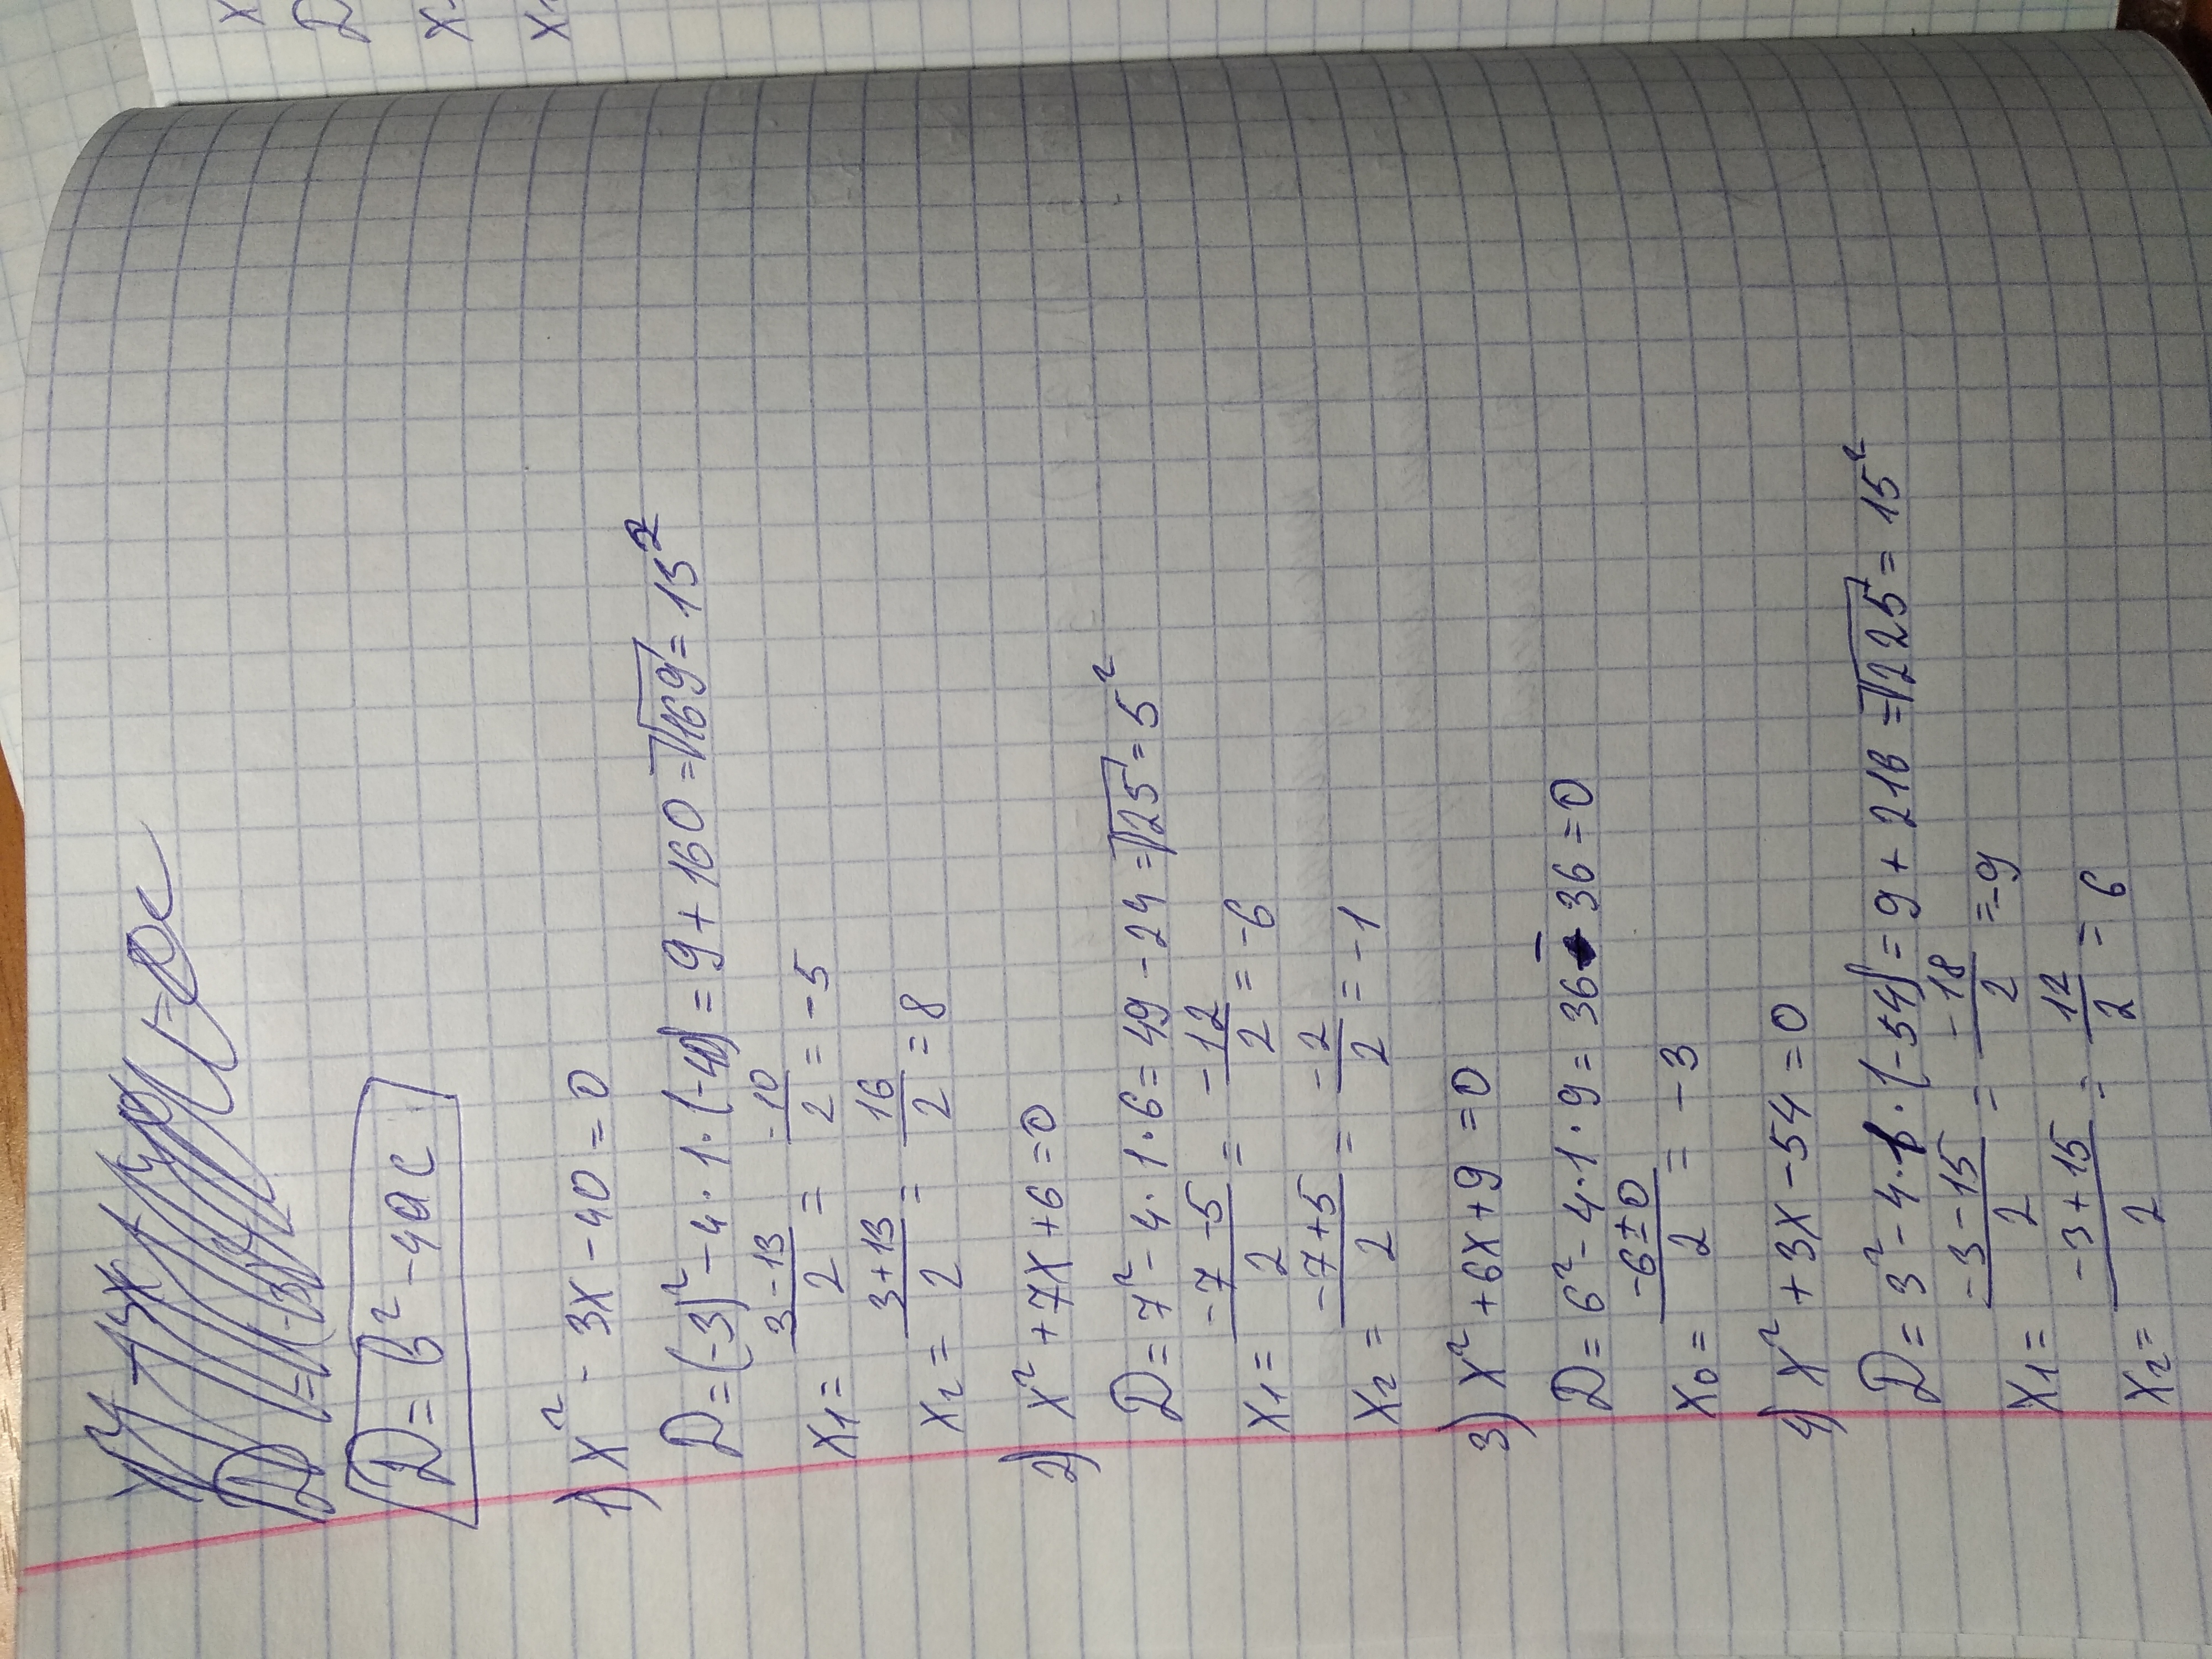 D = b² - 4ac
1) x² - 3x - 40 = 0
D = (-3)² - 4 · 1 · (-40) = 9 + 160 = √169 = 13²
x₁ = (3 - 13)/2 = -10/2 = -5
x₂ = (3 + 13)/2 = 16/2 = 8
2) x² + 7x + 6 = 0
D = 7² - 4 · 1 · 6 = 49 - 24 = √25 = 5²
x₁ = (-7 - 5)/2 = -12/2 = -6
x₂ = (-7 + 5)/2 = -2/2 = -1
3) x² + 6x + 9 = 0
D = 6² - 4 · 1 · 9 = 36 - 36 = 0
x₀ = (-6 ± 0)/2 = -3
4) x² + 3x - 54 = 0
D = 3² - 4 · 1 · (-54) = 9 + 216 = √225 = 15²
x₁ = (-3 - 15)/2 = -18/2 = -9
x₂ = (-3 + 15)/2 = 12/2 = 6